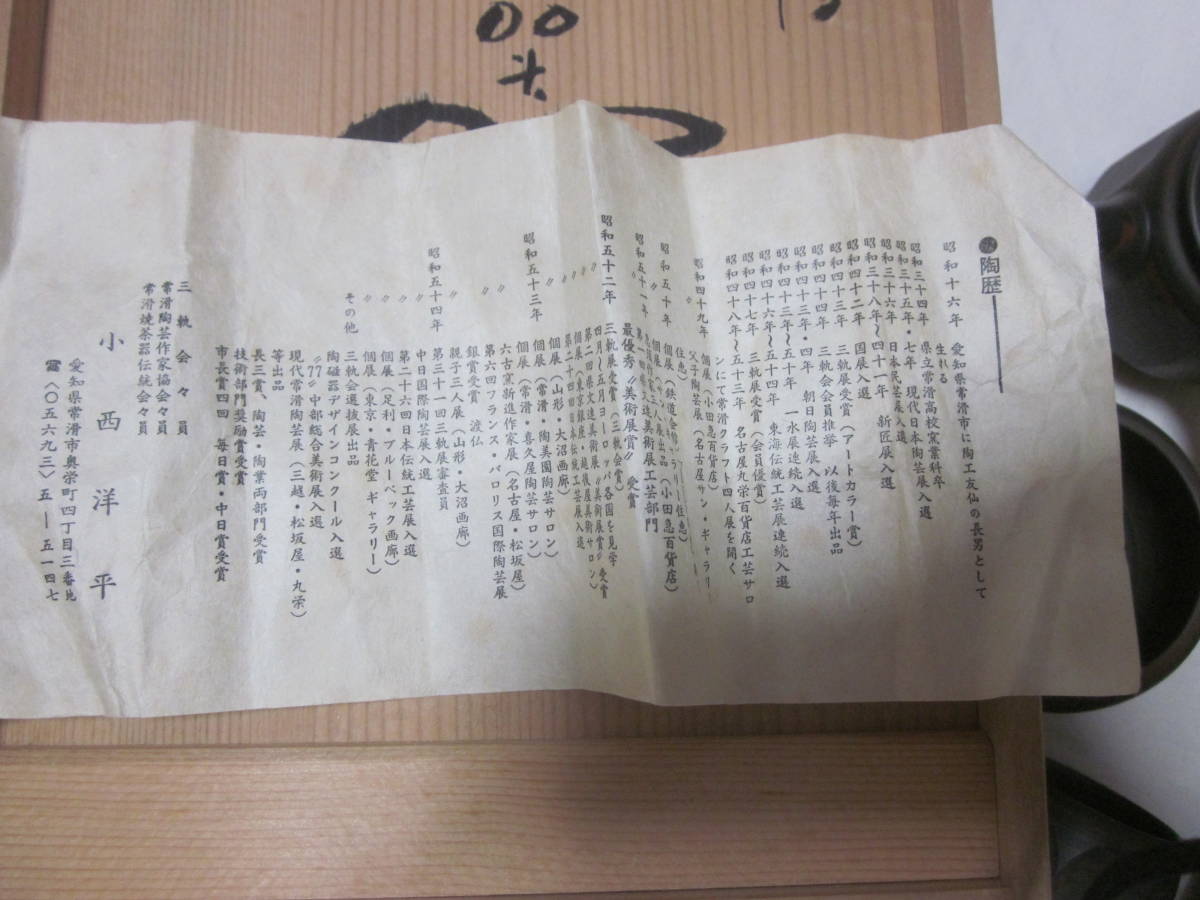 陶歴
昭和十六年 愛知県常滑市に陶工友仙の長男として
生れる
昭和三十四年 県立常滑高校窯業科卒
昭和三十五年・七年 現代日本陶芸展入選
昭和三十六年 日本民芸展入選
昭和三十八年〜四十一年 新匠展入選
昭和四十二年 国展入選
昭和四十三年 三軌展受賞(アートカラー賞)
昭和四十四年 三軌会会員推挙 以後毎年出品
昭和四十三年・四年 朝日陶芸展入選
昭和四十三年〜五十年 一水展連続入選
昭和四十六年〜五十四年 東海伝統工芸展連続入選
昭和四十七年 三軌展受賞(会員優賞)
昭和四十八年〜五十三年 名古屋丸栄百貨店工芸サロ
ンにて常滑クラフト四人展を開く
昭和四十九年 個展(小田急百貨店)
〃 父子陶芸展(名古屋サン・ギャラリー
住恵)
昭和五十年 個展(鉄道会館ギャラリー住恵)
〃 個展(小田急百貨店)
昭和五十一年
〃 美術展工芸部門
最優秀〝美術展賞〟受賞
昭和五十二年 三軌展受賞(三軌会賞)
〃 四月〜五月ヨーロッパ各国を見学
〃 第二回県文連美術展〝美術展賞〟受賞
〃 個展(東京銀座・越後屋美術サロン)
〃 第二十四回日本伝統工芸展入選
〃 個展(山形・大沼画廊)
昭和五十三年 個展(常滑・陶美園陶芸サロン)
〃 個展(常滑・喜久屋陶芸サロン)
〃 六古窯新進作家展(名古屋・松坂屋)
〃 第六回フランス・バロリス国際陶芸展
銀賞受賞 渡仏
〃 親子三人展(山形・大沼画廊)
昭和五十四年 第三十一回三軌展審査員
〃 中日国際陶芸展入選
〃 第二十六回日本伝統工芸展入選
〃 個展(足利・ブルーベック画廊)
〃 個展(東京・青花堂ギャラリー)
その他 三軌会選抜展出品
陶磁器デザインコンクール入選
〝77〟中部総合美術展入選
現代常滑陶芸展(三越・松坂屋・丸栄)
等出品
長三賞、陶芸・陶業両部門受賞
技術部門奨励賞受賞
市長賞四回 毎日賞・中日賞受賞
三軌会々員
常滑陶芸作家協会々員
常滑焼茶器伝統会々員
小西洋平
愛知県常滑市奥栄町四丁目三番地
☎〈〇五六九三〉五―五一四七